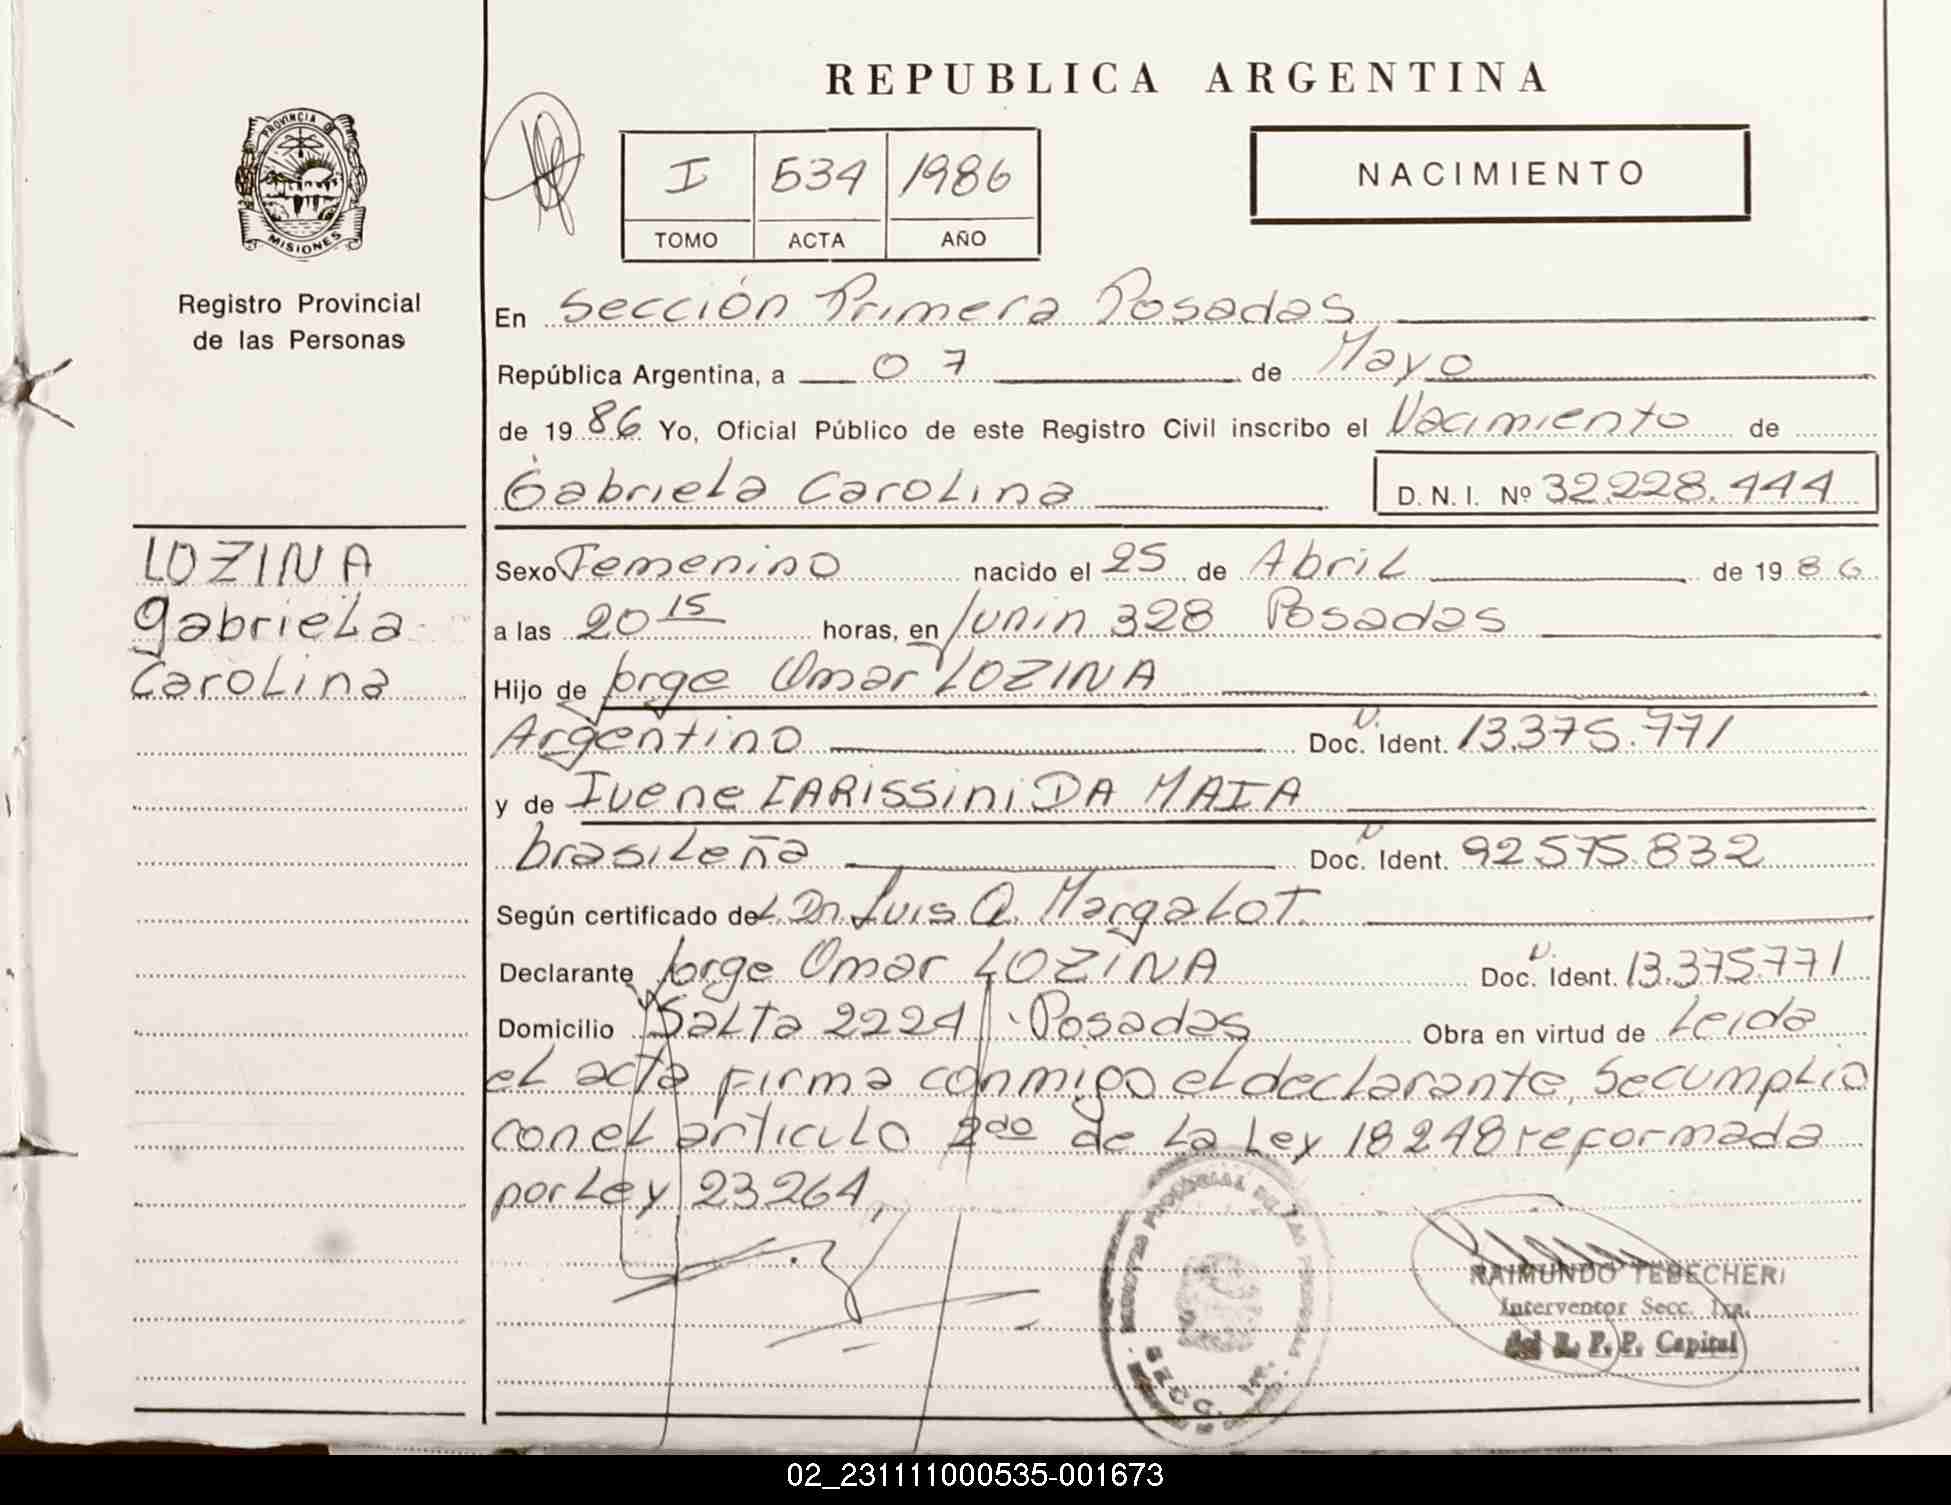 REPUBLICA ARGENTINA
PROVINCIA DE
MISIONES
I 534 1986
TOMO ACTA AÑO
NACIMIENTO
Registro Provincial
de las Personas
En Sección Primera Posadas
República Argentina, a 07 de Mayo
de 1986 Yo, Oficial Público de este Registro Civil inscribo el Nacimiento de
Gabriela Carolina D. N. I. Nº 32.228.444
LOZINA
Gabriela
Carolina
Sexo Femenino nacido el 25 de Abril de 1986
a las 20 15 horas, en Junin 328 Posadas
Hijo de Jorge Omar LOZINA
Argentino Doc. Ident. 13.375.771
y de Ivene DA MAIA
brasileña Doc. Ident. 92575.832
Según certificado del Dr. Luis A. Margalot.
Declarante Jorge Omar LOZINA Doc. Ident. 13.375.771
Domicilio Salta 2224 Posadas Obra en virtud de Leida
el acta firma conmigo el declarante, Se cumplio
con el articulo 2do de la Ley 18248 reformada
por Ley 23264,
RAIMUNDO TEBECHERI
Interventor Secc. 1ra.
del R. P. P. Capital
02_231111000535-001673